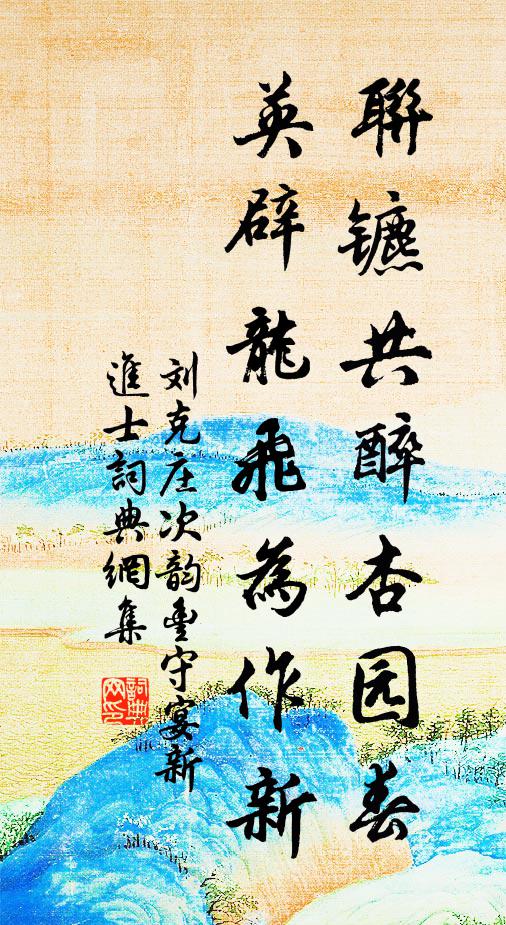 聯镳共醉杏园春
英辟龍飛為作新
刘克庄次韵豊守宴新
進士詞典網集
詞典
网印